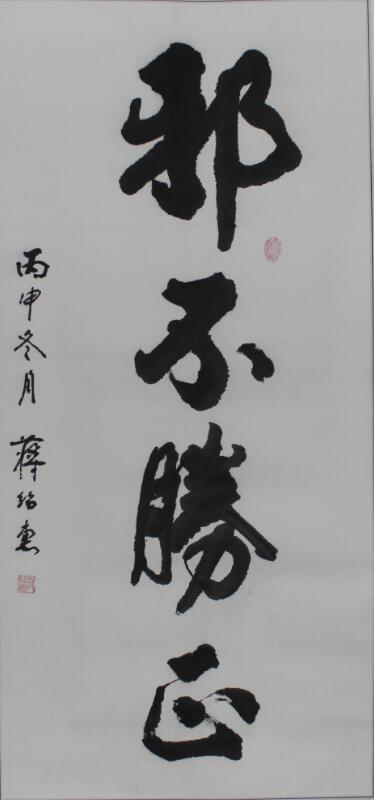 邪不勝正
丙申冬月 蔣紹惠